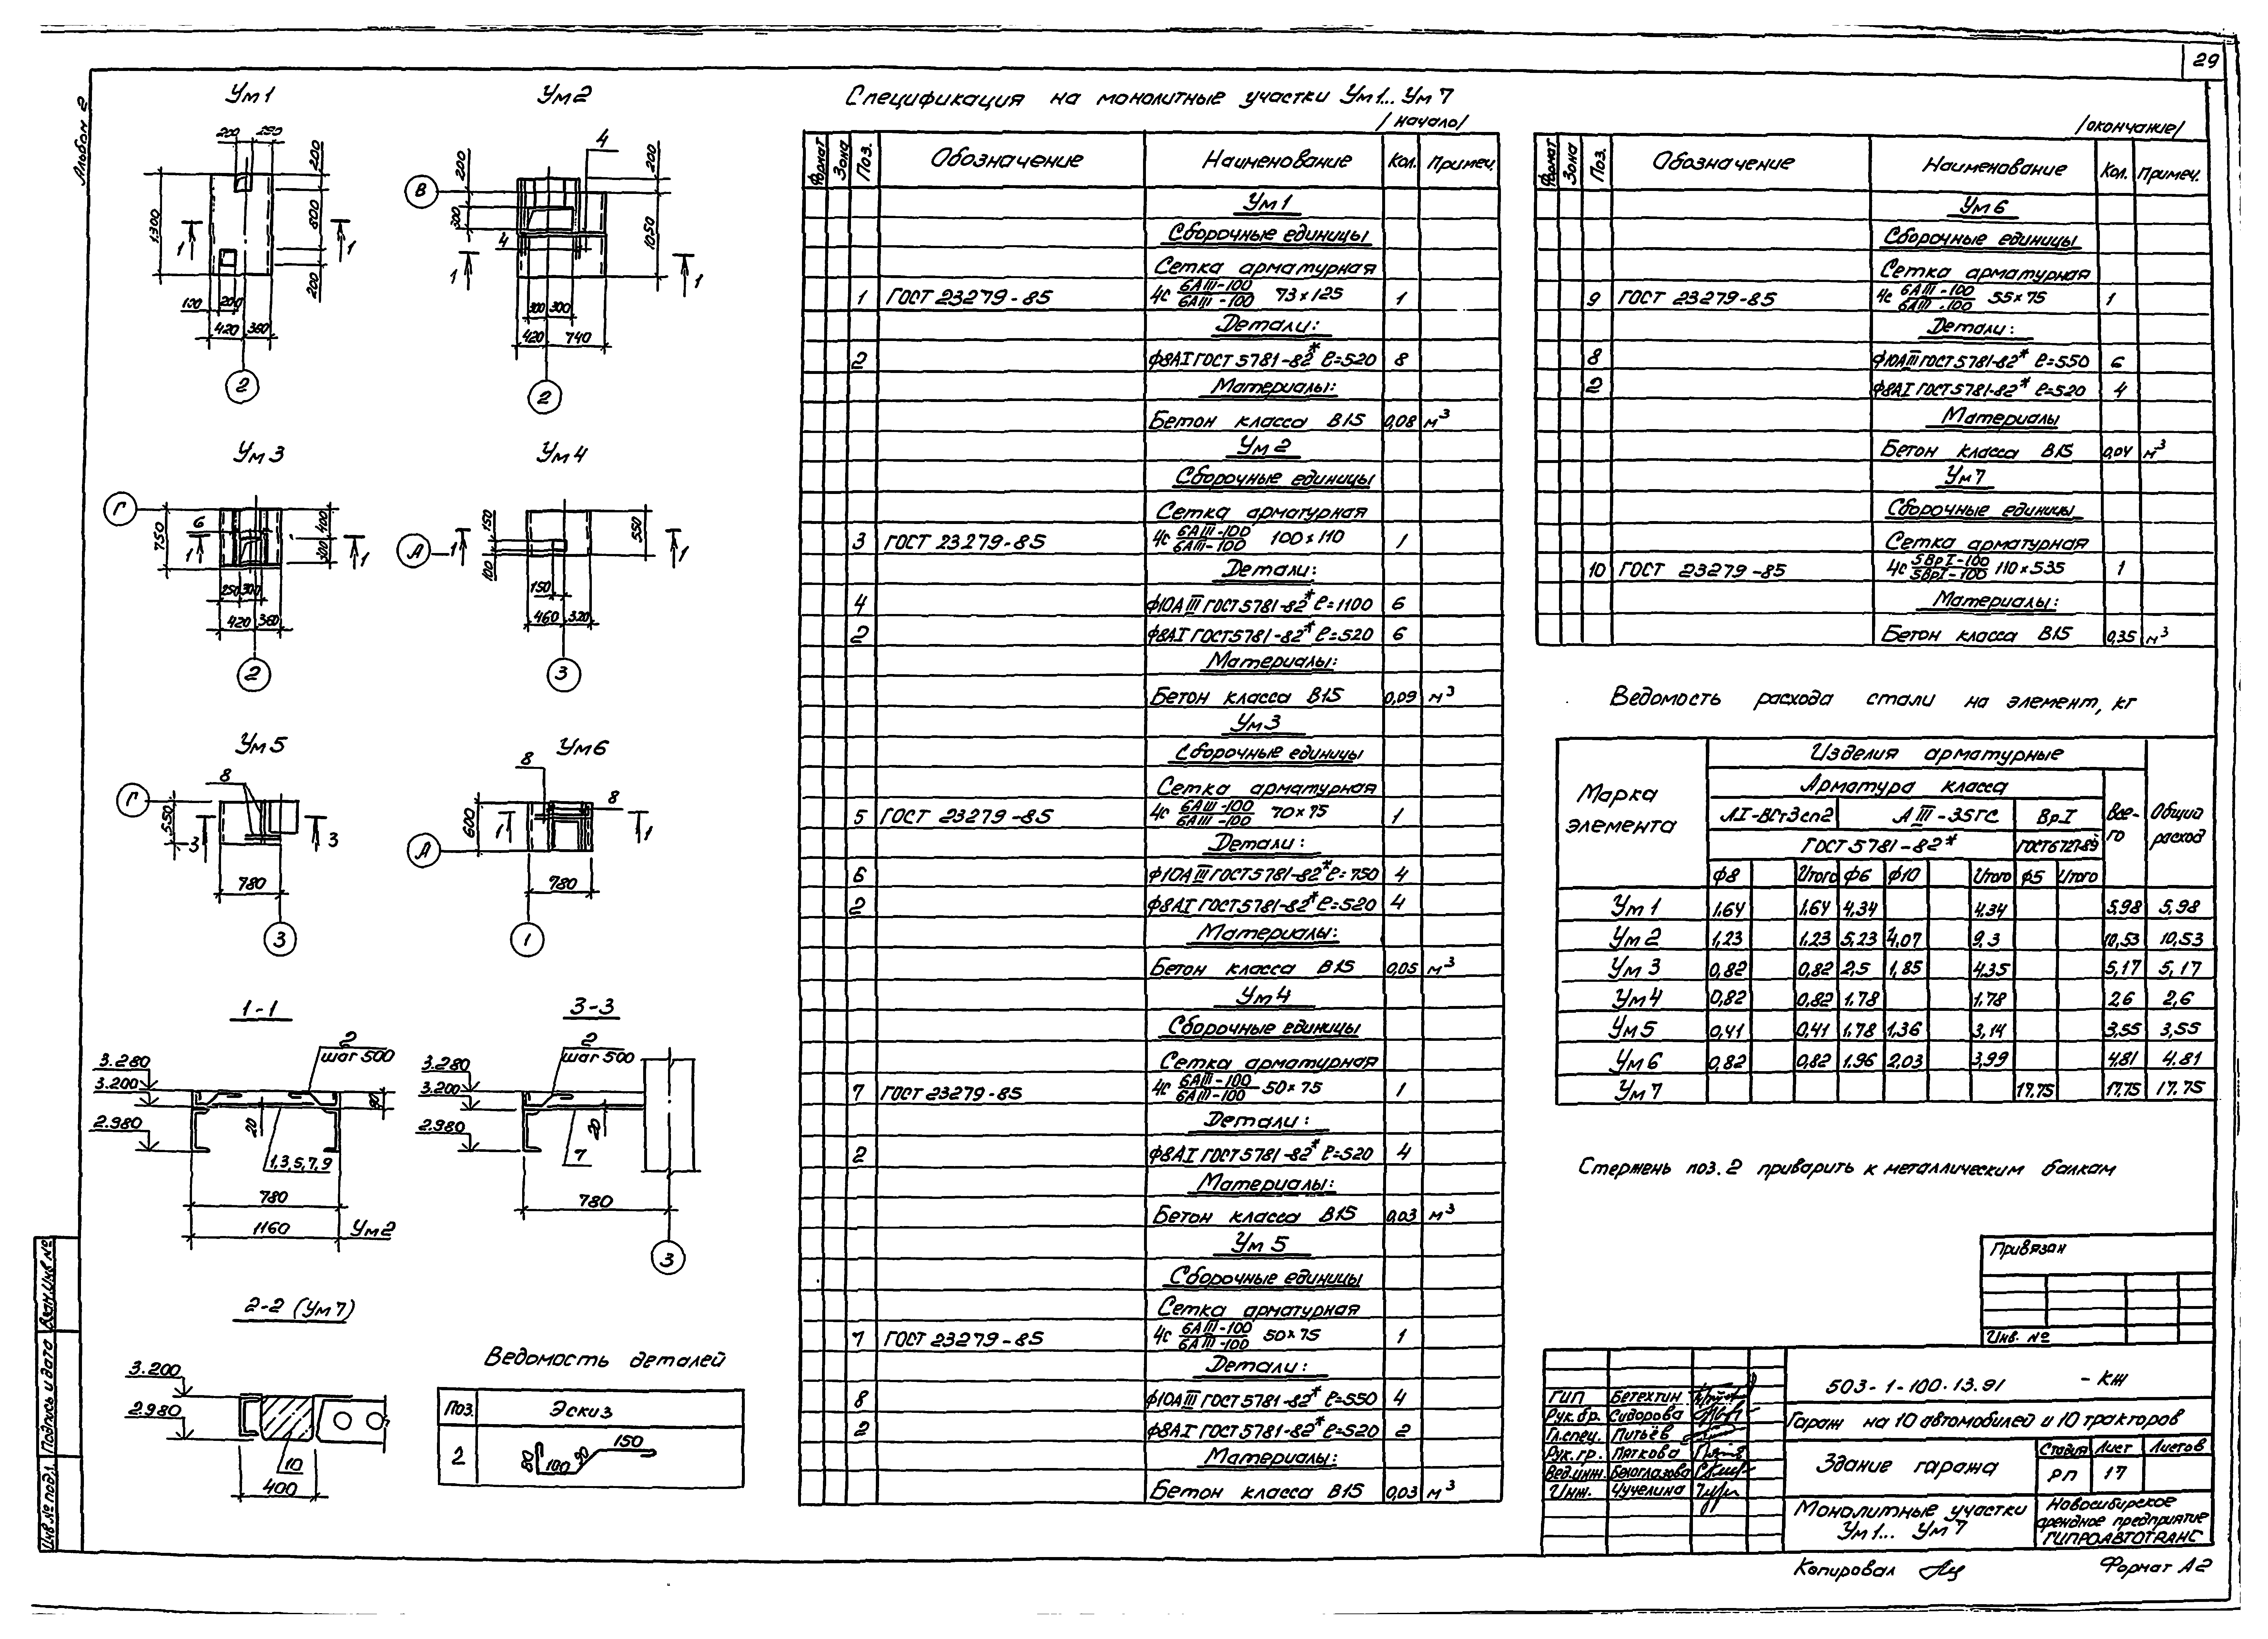 29
Альбом 2
Ум1
200 250
200
800
200
1300
1 1
100 200
420 360
2
Ум2
4
200
300
В
200
1050
4
1 1
300 300
420 740
2
Ум3
Г
750
6
1 1
400
300
250 300
420 360
2
Ум4
150
100
А
1 1
550
150
460 320
3
Ум5
8
Г
550
3 3
780
3
Ум6
8
8
600
1 1
А
780
1
1-1
2
шаг 500
3.280
3.200
2.980
20
80
1,3,5,7,9
780
1160 Ум2
3-3
2
шаг 500
3.280
3.200
2.980
20
7
780
3
2-2 (Ум7)
3.200
2.980
10
400
Ведомость деталей
Поз. Эскиз
2 80 100 90 150
Спецификация на монолитные участки Ум1... Ум7
/начало/
Формат Зона Поз. Обозначение Наименование Кол. Примеч.
Ум1
Сборочные единицы
Сетка арматурная
1 ГОСТ 23279-85 4с 6АIII-100/6АIII-100 73×125 1
Детали:
2 ф8АI ГОСТ 5781-82* ℓ=520 8
Материалы:
Бетон класса В15 0,08 м³
Ум2
Сборочные единицы
Сетка арматурная
3 ГОСТ 23279-85 4с 6АIII-100/6АIII-100 100×110 1
Детали:
4 ф10АIII ГОСТ 5781-82* ℓ=1100 6
2 ф8АI ГОСТ 5781-82* ℓ=520 6
Материалы:
Бетон класса В15 0,09 м³
Ум3
Сборочные единицы
Сетка арматурная
5 ГОСТ 23279-85 4с 6АIII-100/6АIII-100 70×75 1
Детали:
6 ф10АIII ГОСТ 5781-82* ℓ=750 4
2 ф8АI ГОСТ 5781-82* ℓ=520 4
Материалы:
Бетон класса В15 0,05 м³
Ум4
Сборочные единицы
Сетка арматурная
7 ГОСТ 23279-85 4с 6АIII-100/6АIII-100 50×75 1
Детали:
2 ф8АI ГОСТ 5781-82* ℓ=520 4
Материалы:
Бетон класса В15 0,03 м³
Ум5
Сборочные единицы
Сетка арматурная
7 ГОСТ 23279-85 4с 6АIII-100/6АIII-100 50×75 1
Детали:
8 ф10АIII ГОСТ 5781-82* ℓ=550 4
2 ф8АI ГОСТ 5781-82* ℓ=520 2
Материалы:
Бетон класса В15 0,03 м³
/окончание/
Формат Зона Поз. Обозначение Наименование Кол. Примеч.
Ум6
Сборочные единицы
Сетка арматурная
9 ГОСТ 23279-85 4с 6АIII-100/6АIII-100 55×75 1
Детали:
8 ф10АIII ГОСТ 5781-82* ℓ=550 6
2 ф8АI ГОСТ 5781-82* ℓ=520 4
Материалы
Бетон класса В15 0,04 м³
Ум7
Сборочные единицы
Сетка арматурная
10 ГОСТ 23279-85 4с 5ВрI-100/5ВрI-100 110×535 1
Материалы:
Бетон класса В15 0,35 м³
Ведомость расхода стали на элемент, кг
Марка элемента
Изделия арматурные
Арматура класса
Всего
Общий расход
АI-ВСт3сп2 АIII-35ГС ВрI
ГОСТ 5781-82* ГОСТ 6727-80
ф8 Итого ф6 ф10 Итого ф5 Итого
Ум1 1,64 1,64 4,34 4,34 5,98 5,98
Ум2 1,23 1,23 5,23 4,07 9,3 10,53 10,53
Ум3 0,82 0,82 2,5 1,85 4,35 5,17 5,17
Ум4 0,82 0,82 1,78 1,78 2,6 2,6
Ум5 0,41 0,41 1,78 1,36 3,14 3,55 3,55
Ум6 0,82 0,82 1,96 2,03 3,99 4,81 4.81
Ум7 17,75 17,75 17.75
Стержень поз. 2 приварить к металлическим балкам
Привязан
Инв. №
503-1-100.13.91 -КЖ
Гараж на 10 автомобилей и 10 тракторов
Здание гаража
Стадия Лист Листов
РП 17
Монолитные участки
Ум1... Ум7
Новосибирское
арендное предприятие
ГИПРОАВТОТРАНС
ГИП Бетехтин
Рук.бр. Сидорова
Гл.спец. Питьёв
Рук.гр. Пяткова
Вед.инж. Белоглазова
Инж. Чучелина
Инв.№ подл. Подпись и дата Взам.Инв.№
Копировал
Формат А2